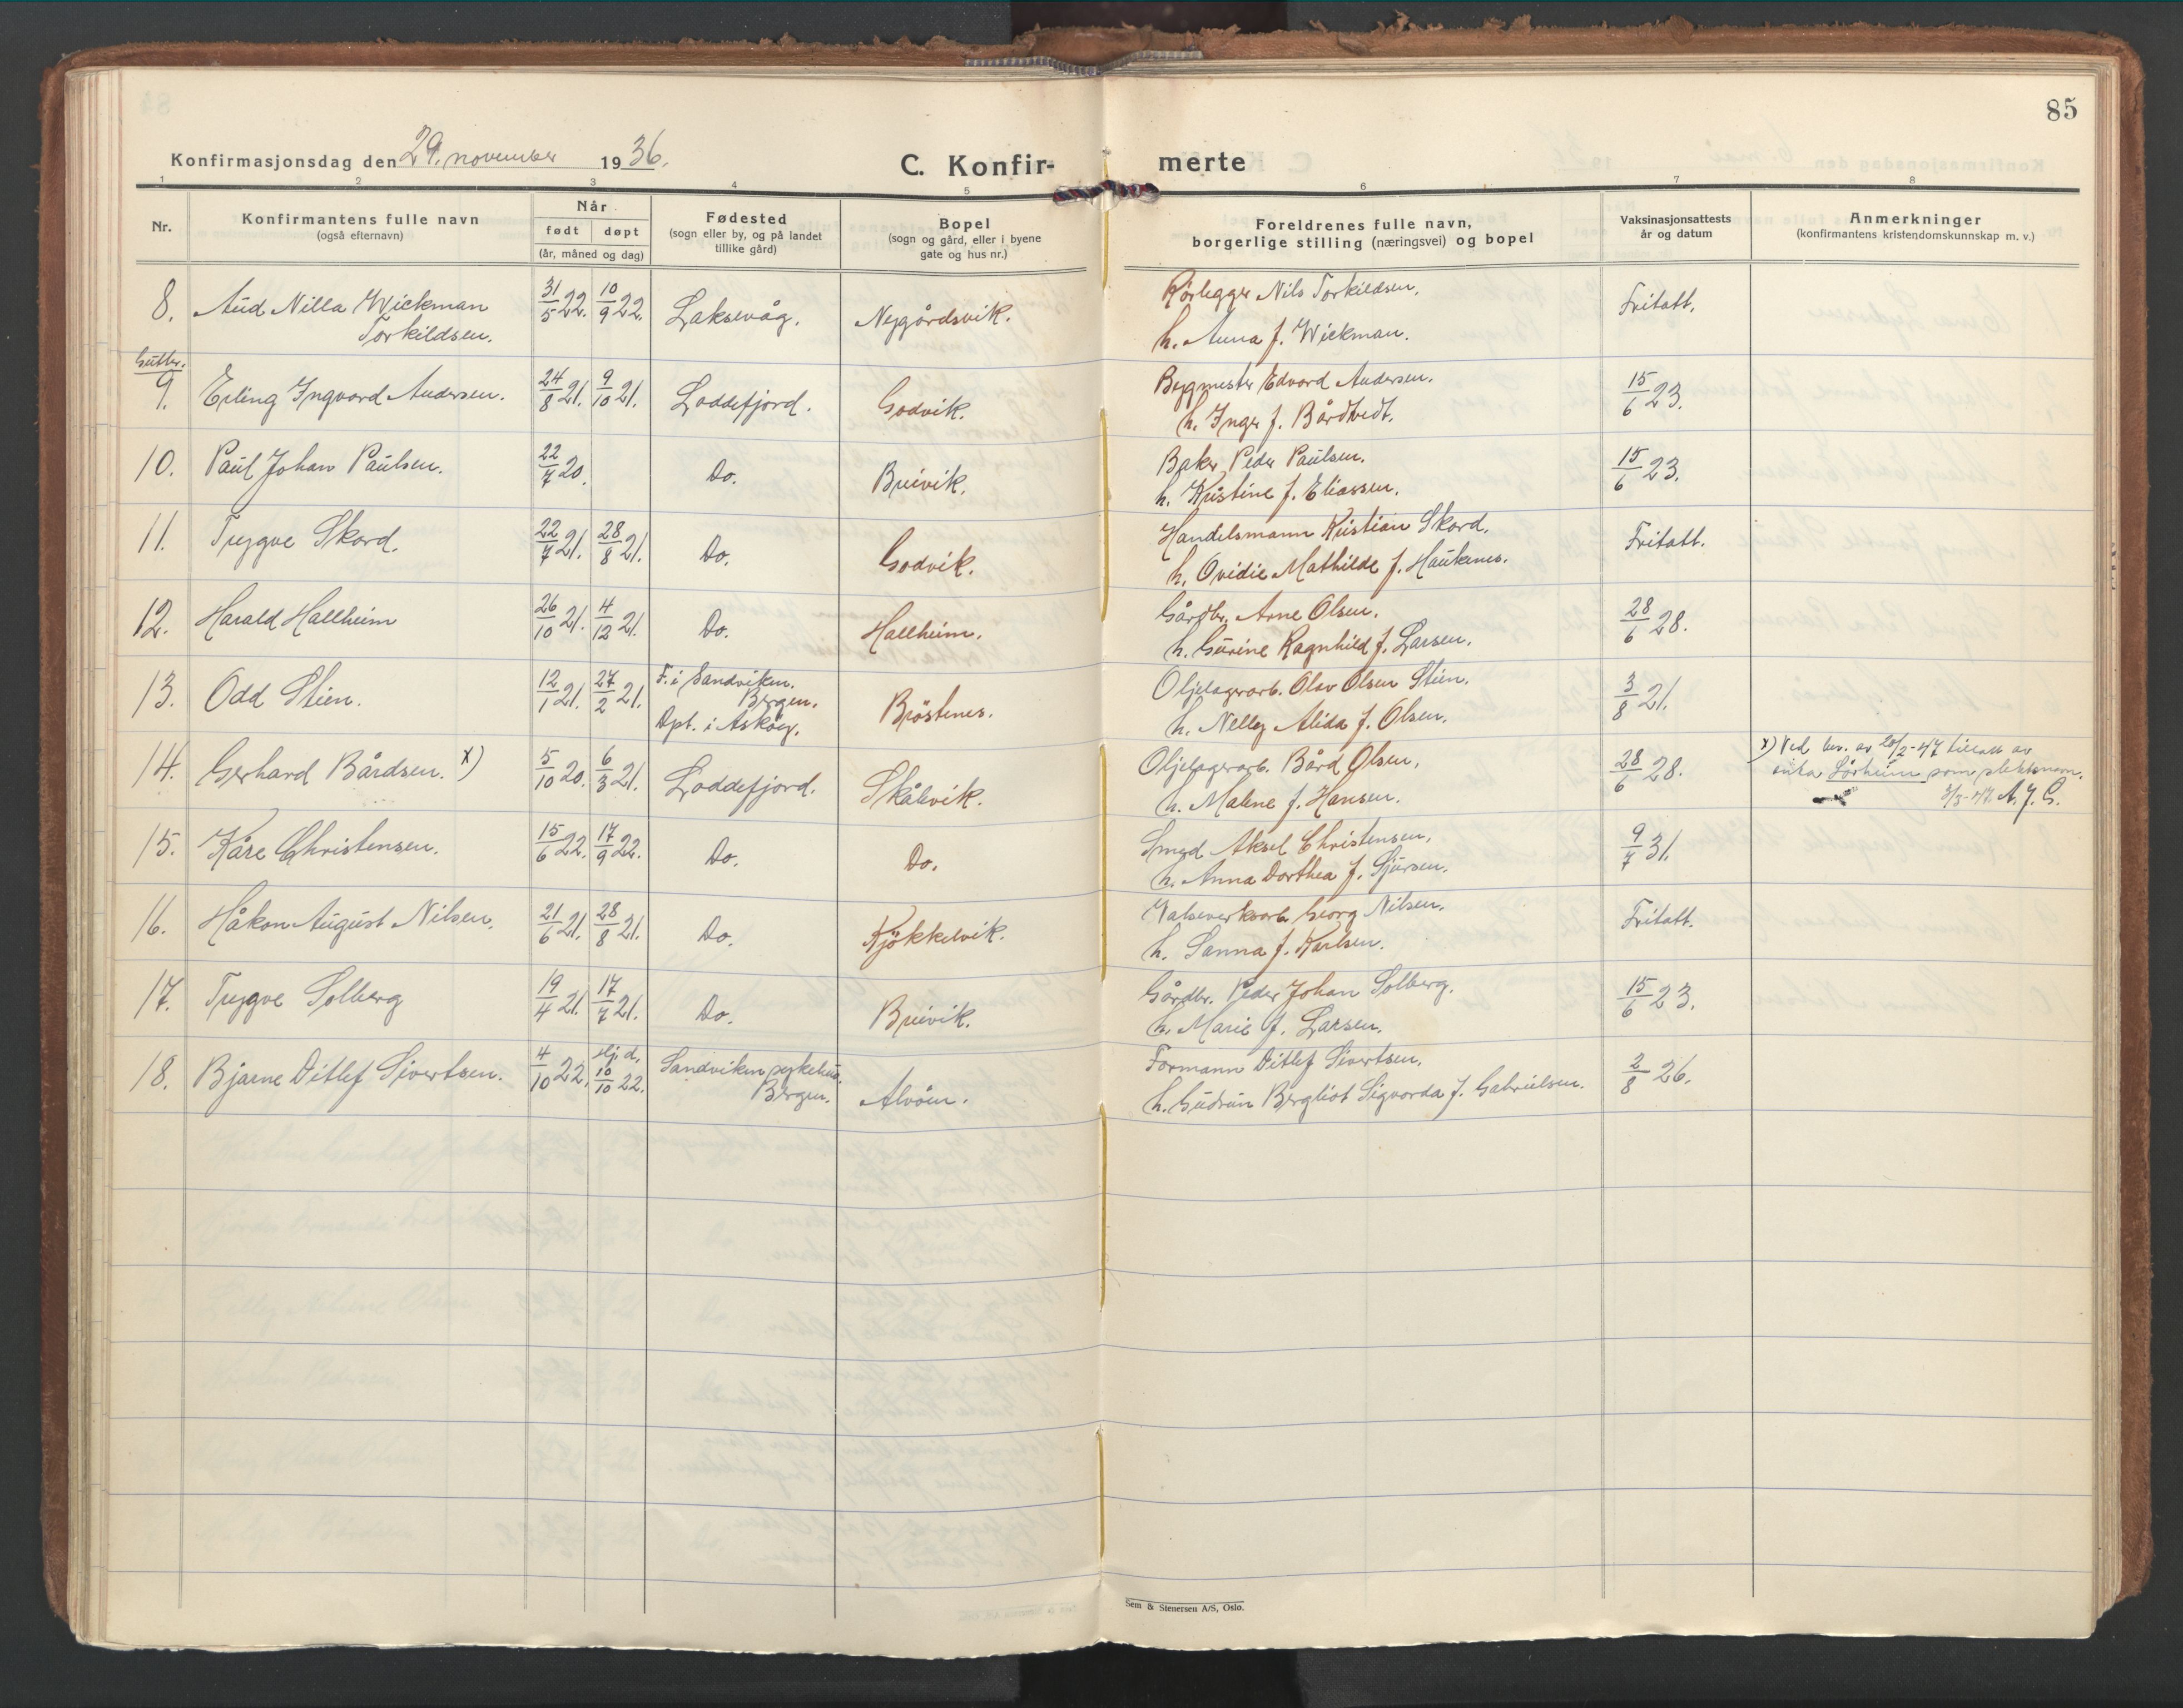 85
Konfirmasjonsdag den 29. november 1936.
C. Konfir- merte
1 2 3 4 5 6 7 8
Nr.
Konfirmantens fulle navn
(også efternavn)
Når
født døpt
(år, måned og dag)
Fødested
(sogn eller by, og på landet
tillike gård)
Bopel
(sogn og gård, eller i byene
gate og hus nr.)
Foreldrenes fulle navn,
borgerlige stilling (næringsvei) og bopel
Vaksinasjonsattests
år og datum
Anmerkninger
(konfirmantens kristendomskunnskap m. v.)
8. Aud Nilla Wickman 31/5 22. 10/9 22. Laksevåg. Nygårdsvik. Rørlegger Nils Torkildsen, Fritatt.
Torkildsen. h. Anna f. Wickman.
Gutter.
9. Erling Ingvard Andersen. 24/8 21. 9/10 21. Loddefjord. Godvik. Bygmester Edvard Andersen. 15/6 23.
h. Inger f. Bårdtvedt.
10. Paul Johan Paulsen. 22/7 20. Do. Breivik. Baker Peder Paulsen. 15/6 23.
h. Kristine f. Eliassen.
11. Trygve Skard. 22/7 21. 28/8 21. Do. Godvik. Handelsmann Kristian Skard. Fritatt.
h. Ovidie Mathilde f. Haukenes.
12. Harald Hallheim 26/10 21. 4/12 21. Do. Hallheim. Gårdbr. Arne Olsen. 28/6 28.
h. Gurine Ragnhild f. Larsen.
13. Odd Stien. 12/1 21. 27/2 21. F. i Sandviken. Brøstenes. Oljelagerarb. Olav Olsen Stien. 3/8 21.
Bergen.
Dpt. i Askøy. h. Nelly Alida f. Olsen.
14. Gerhard Bårdsen. x) 5/10 20. 6/3 21. Loddefjord. Skålevik. Oljelagerarb. Bård Olsen. 28/6 28. x) Ved bev. av 20/2-47 tillatt av
h. Malene f. Hansen. anta Sørheim som slektsnavn.
3/3-47. A. J. G.
15. Kåre Christensen. 15/6 22. 17/9 22. Do. Do. Smed Aksel Christensen. 9/7 31.
h. Anna Dorthea f. Sjursen.
16. Håkon August Nilsen. 21/6 21. 28/8 21. Do. Kjøkkelvik. Valseverksarb. Georg Nilsen. Fritatt.
h. Sanna f. Karlsen.
17. Trygve Solberg 19/4 21. 17/7 21. Do. Breivik. Gårdbr. Peder Johan Solberg. 15/6 23.
h. Marie f. Larsen.
18. Bjarne Ditlef Sivertsen. 4/10 22. Hj. d. 10/10 22. Sandviken sykehus. Alvøen. Formann Ditlef Sivertsen. 2/8 26.
Bergen. h. Gudrun Bergliot Sigvarda f. Gabrielsen.
Sem & Stenersen A/S, Oslo.